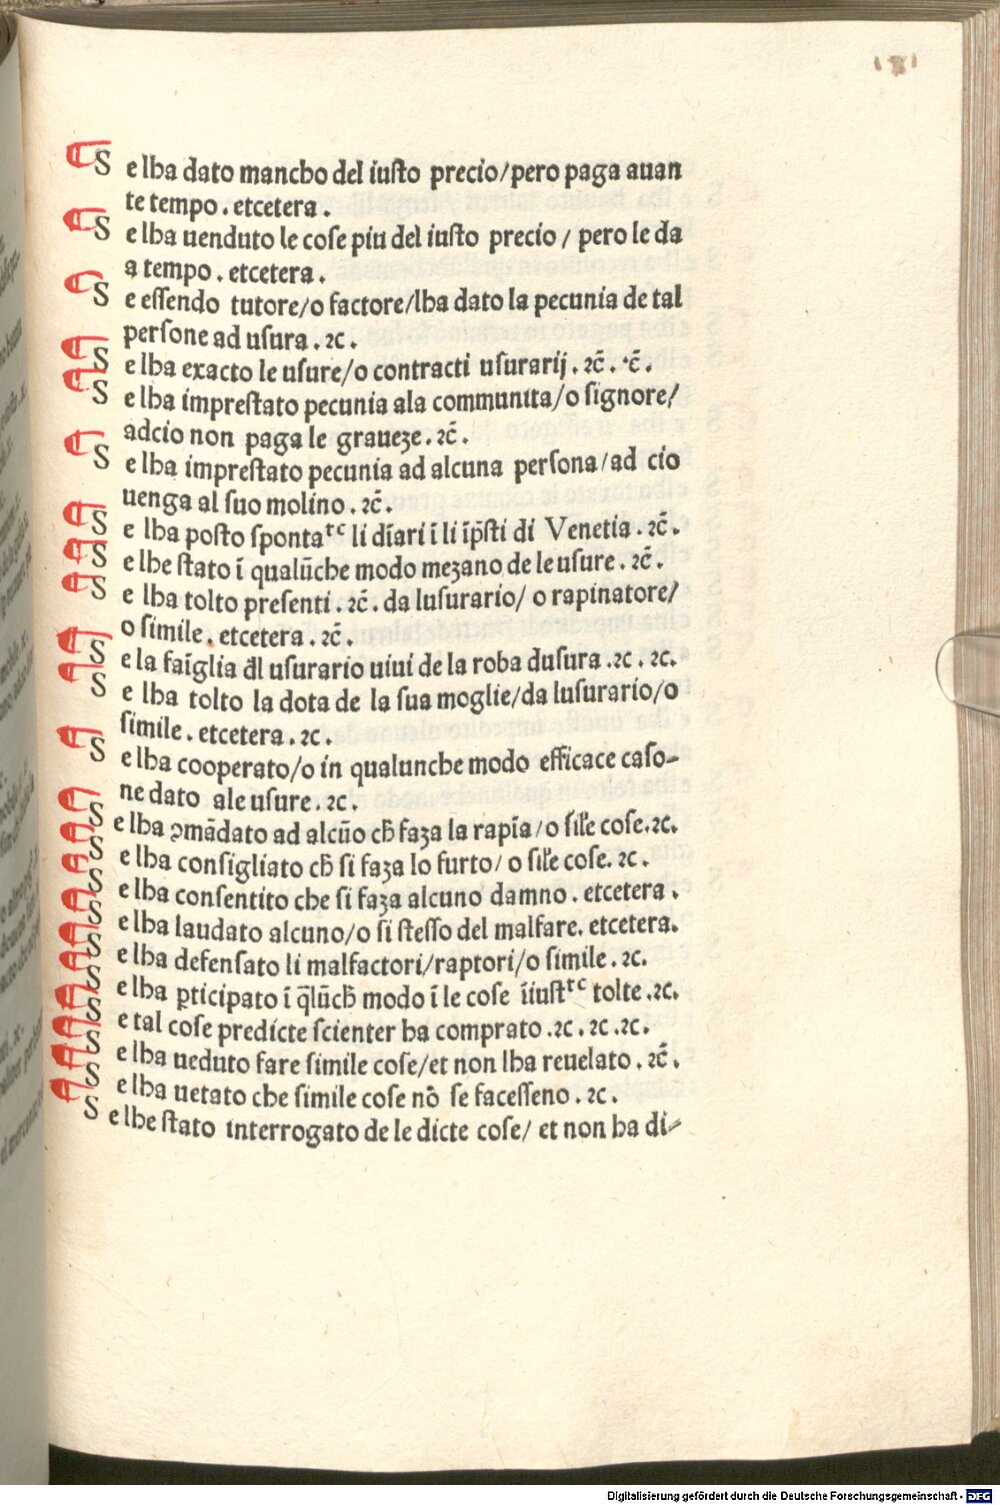 ¶ Se lha dato mancho del iusto precio/pero paga auan
te tempo. etcetera.
¶ Se lha uenduto le cose piu del iusto precio / pero le da
a tempo. etcetera.
¶ Se essendo tutore/o factore/lha dato la pecunia de tal
persone ad usura. ⁊c.
¶ Se lha exacto le usure/o contracti usurarij. ⁊c̄. ⁊c̄.
¶ Se lha imprestato pecunia ala communita/o signore/
adcio non paga le graueze. ⁊c̄.
¶ Se lha imprestato pecunia ad alcuna persona/ad cio
uenga al suo molino. ⁊c̄.
¶ Se lha posto spontaʳᶜ li dīari ī li īp̄sti di Venetia. ⁊c̄.
¶ Se lhe stato ī qualūche modo mezano de le usure. ⁊c̄.
¶ Se lha tolto presenti. ⁊c̄. da lusurario/ o rapinatore/
o simile. etcetera. ⁊c̄.
¶ Se la faīglia đl usurario uiui de la roba dusura. ⁊c. ⁊c.
¶ Se lha tolto la dota de la sua moglie/da lusurario/o
simile. etcetera. ⁊c.
¶ Se lha cooperato/o in qualunche modo efficace caso-
ne dato ale usure. ⁊c.
¶ Se lha ꝯmādato ad alcūo cħ faza la rapīa/o sil̄e cose. ⁊c.
¶ Se lha consigliato cħ si faza lo furto/ o sil̄e cose. ⁊c.
¶ Se lha consentito che si faza alcuno damno. etcetera.
¶ Se lha laudato alcuno/o si stesso del malfare. etcetera.
¶ Se lha defensato li malfactori/raptori/o simile. ⁊c.
¶ Se lha ꝑticipato ī q̄lūcħ modo ī le cose īiustʳᶜ tolte. ⁊c.
¶ Se tal cose predicte scienter ha comprato. ⁊c. ⁊c. ⁊c.
¶ Se lha ueduto fare simile cose/et non lha reuelato. ⁊c̄.
¶ Se lha uetato che simile cose nō se facesseno. ⁊c.
¶ Se lhe stato interrogato de le dicte cose/ et non ha di-
Digitalisierung gefördert durch die Deutsche Forschungsgemeinschaft - DFG